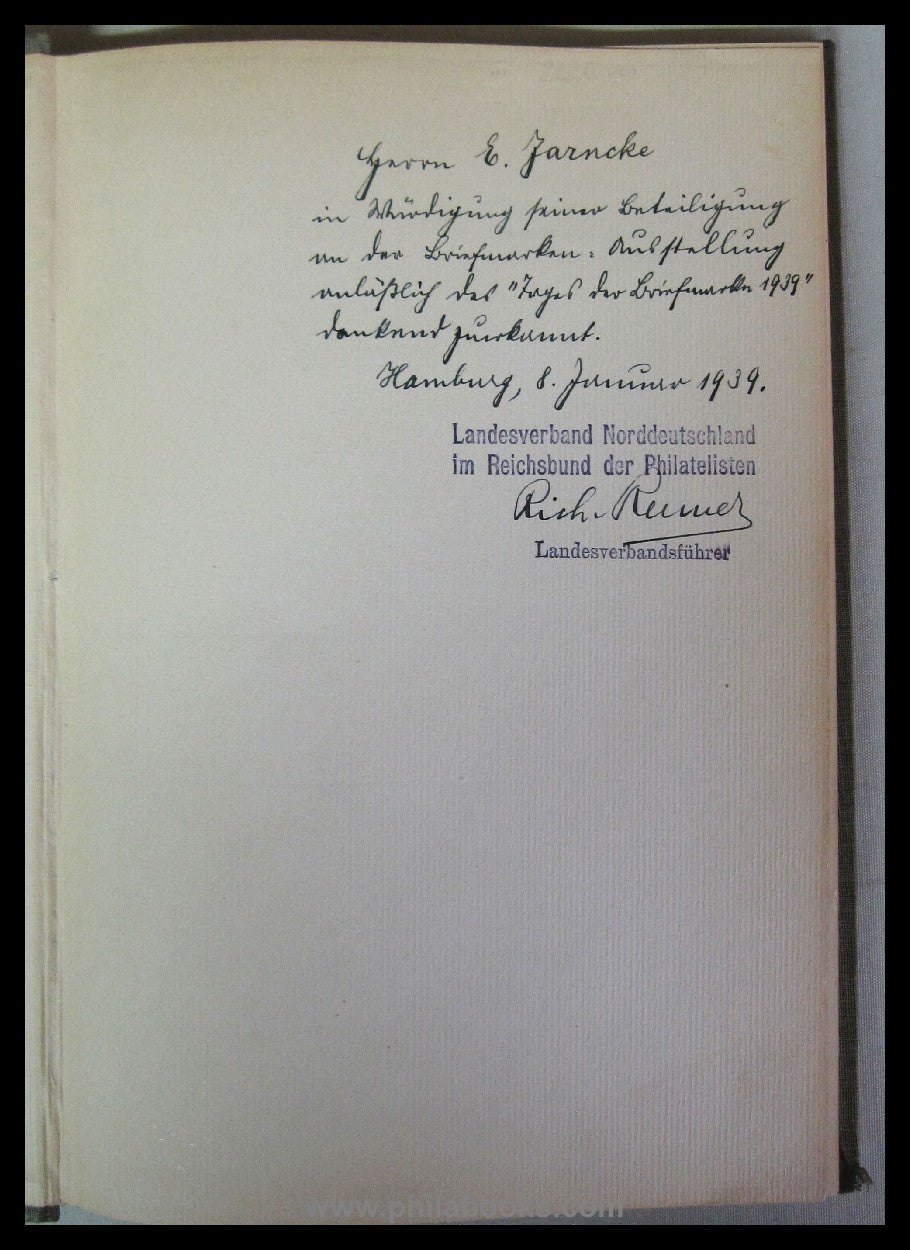 Herrn E. Jarncke
in Würdigung seiner Beteiligung
an der Briefmarken-Ausstellung
anläßlich des "Tages der Briefmarke 1939"
dankend zuerkannt.
Hamburg, 8. Januar 1939.
Landesverband Norddeutschland
im Reichsbund der Philatelisten
Rich.
Landesverbandsführer